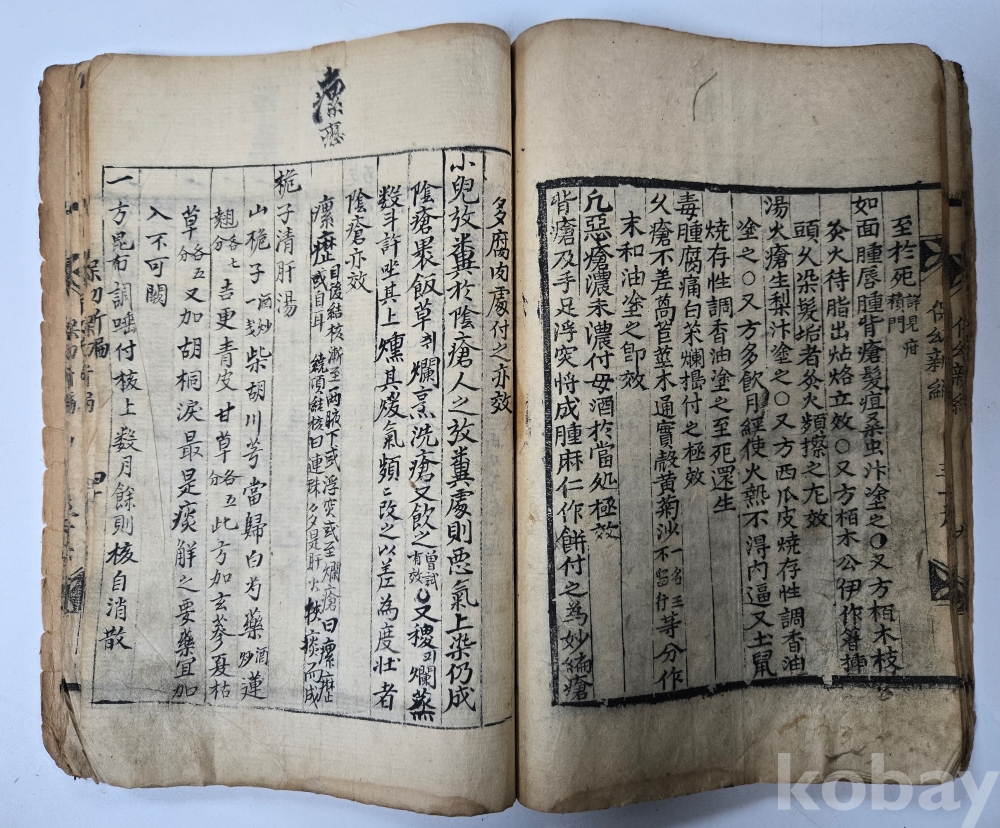 至於死 詳見疳積門
如面腫唇腫背瘡髮疽桑虫汁塗之〇又方栢木枝
灸火待脂出㸃烙立效〇又方栢木公伊作箸揷
頭久染髮垢者灸火頻擦之尤效
湯火瘡生梨汁塗之〇又方西瓜皮燒存性調香油
塗之〇又方多飮月經使火熱不得內逼又土鼠
燒存性調香油塗之至死還生
毒腫腐痛白苯爛擣付之極效
久瘡不差萵苣莖木通實殼黃菊沙 一名三不留行 等分作
末和油塗之卽效
凡惡瘡濃未濃付母酒於當処極效
背瘡及手足浮突將成腫麻仁作餠付之為妙 瘡
多腐肉處付之亦效
小兒放糞於陰瘡人之放糞處則惡氣上染仍成
陰瘡畏飯草 爛烹洗瘡又飮之 曾試有效 〇又稷 爛蒸
數斗許坐其上燻其煖氣頻頻改之以差為度壯者
陰瘡亦效
瘰癧 自後結核漸至兩腋下或浮突或至爛瘡曰瘰癧或自耳 繞項 核曰連珠多是肝火 痰而成
梔子清肝湯
山梔子一酒炒柴胡川芎當歸白芍藥酒炒連
翹各七分吉更青皮甘草各五分此方加玄蔘夏枯
草各五分又加胡桐淚最是痰解之要藥宜加
入不可闕
一方昆布調唾付核上數月餘則核自消散
kobay